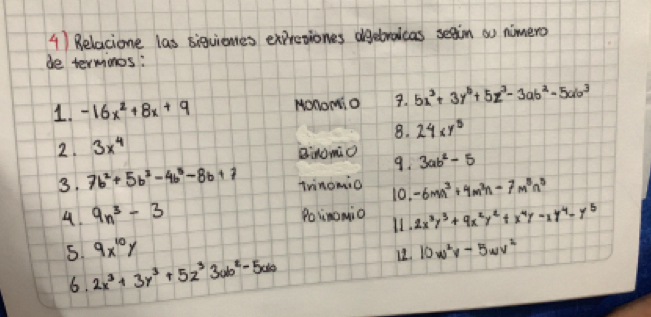 4) Relacione las siguientes expresiones algebraicas según su número
de terminos:
1. -16x² + 8x + 9
2. 3x⁴
3. 7b² + 5b³ - 4b⁵ - 8b + 7
4. 9n³ - 3
5. 9x¹⁰y
6. 2x³ + 3y³ + 5z³ 3ab² - 5ab
Monomio
Binomio
Trinomio
Polinomio
7. 5x³ + 3y⁶ + 5z³ - 3ab² - 5ab³
8. 24xy⁵
9. 3ab² - 5
10. -6mn³ + 4m³n - 7m⁵n⁵
11. 2x³y³ + 9x²y² + x⁴y - xy⁴ - y⁵
12. 10w²v - 5wv²